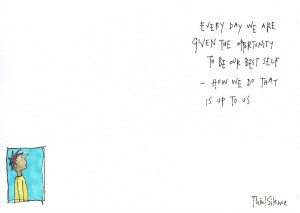 EVERY DAY WE ARE
GIVEN THE OPORTUNITY
TO BE OUR BEST SELF
- HOW WE DO THAT
IS UP TO US